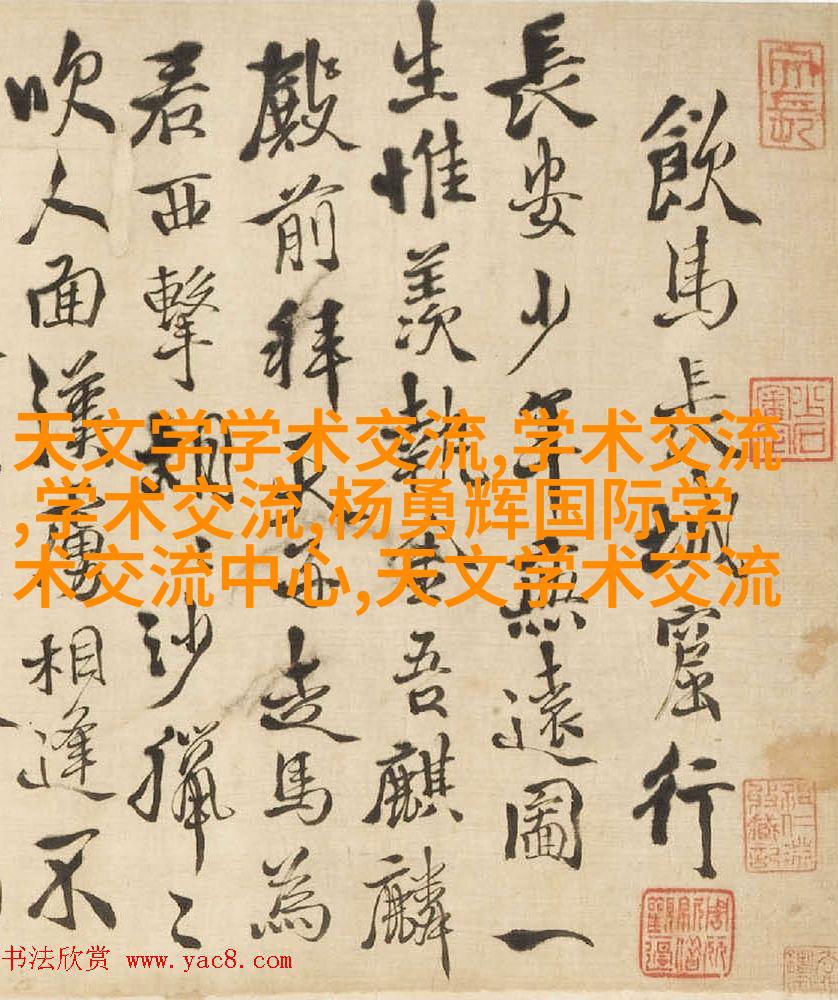 飲馬長城窟行
長安少年無遠圖一
生惟羨執金吾麒麟
殿前拜天走馬為
君西擊胡〻沙獵〻
吹人面漢虜相逢不
天文学学术交流,学术交流
,学术交流,杨勇辉国际学
术交流中心,天文学术交流
书法欣赏 www.yac8.com